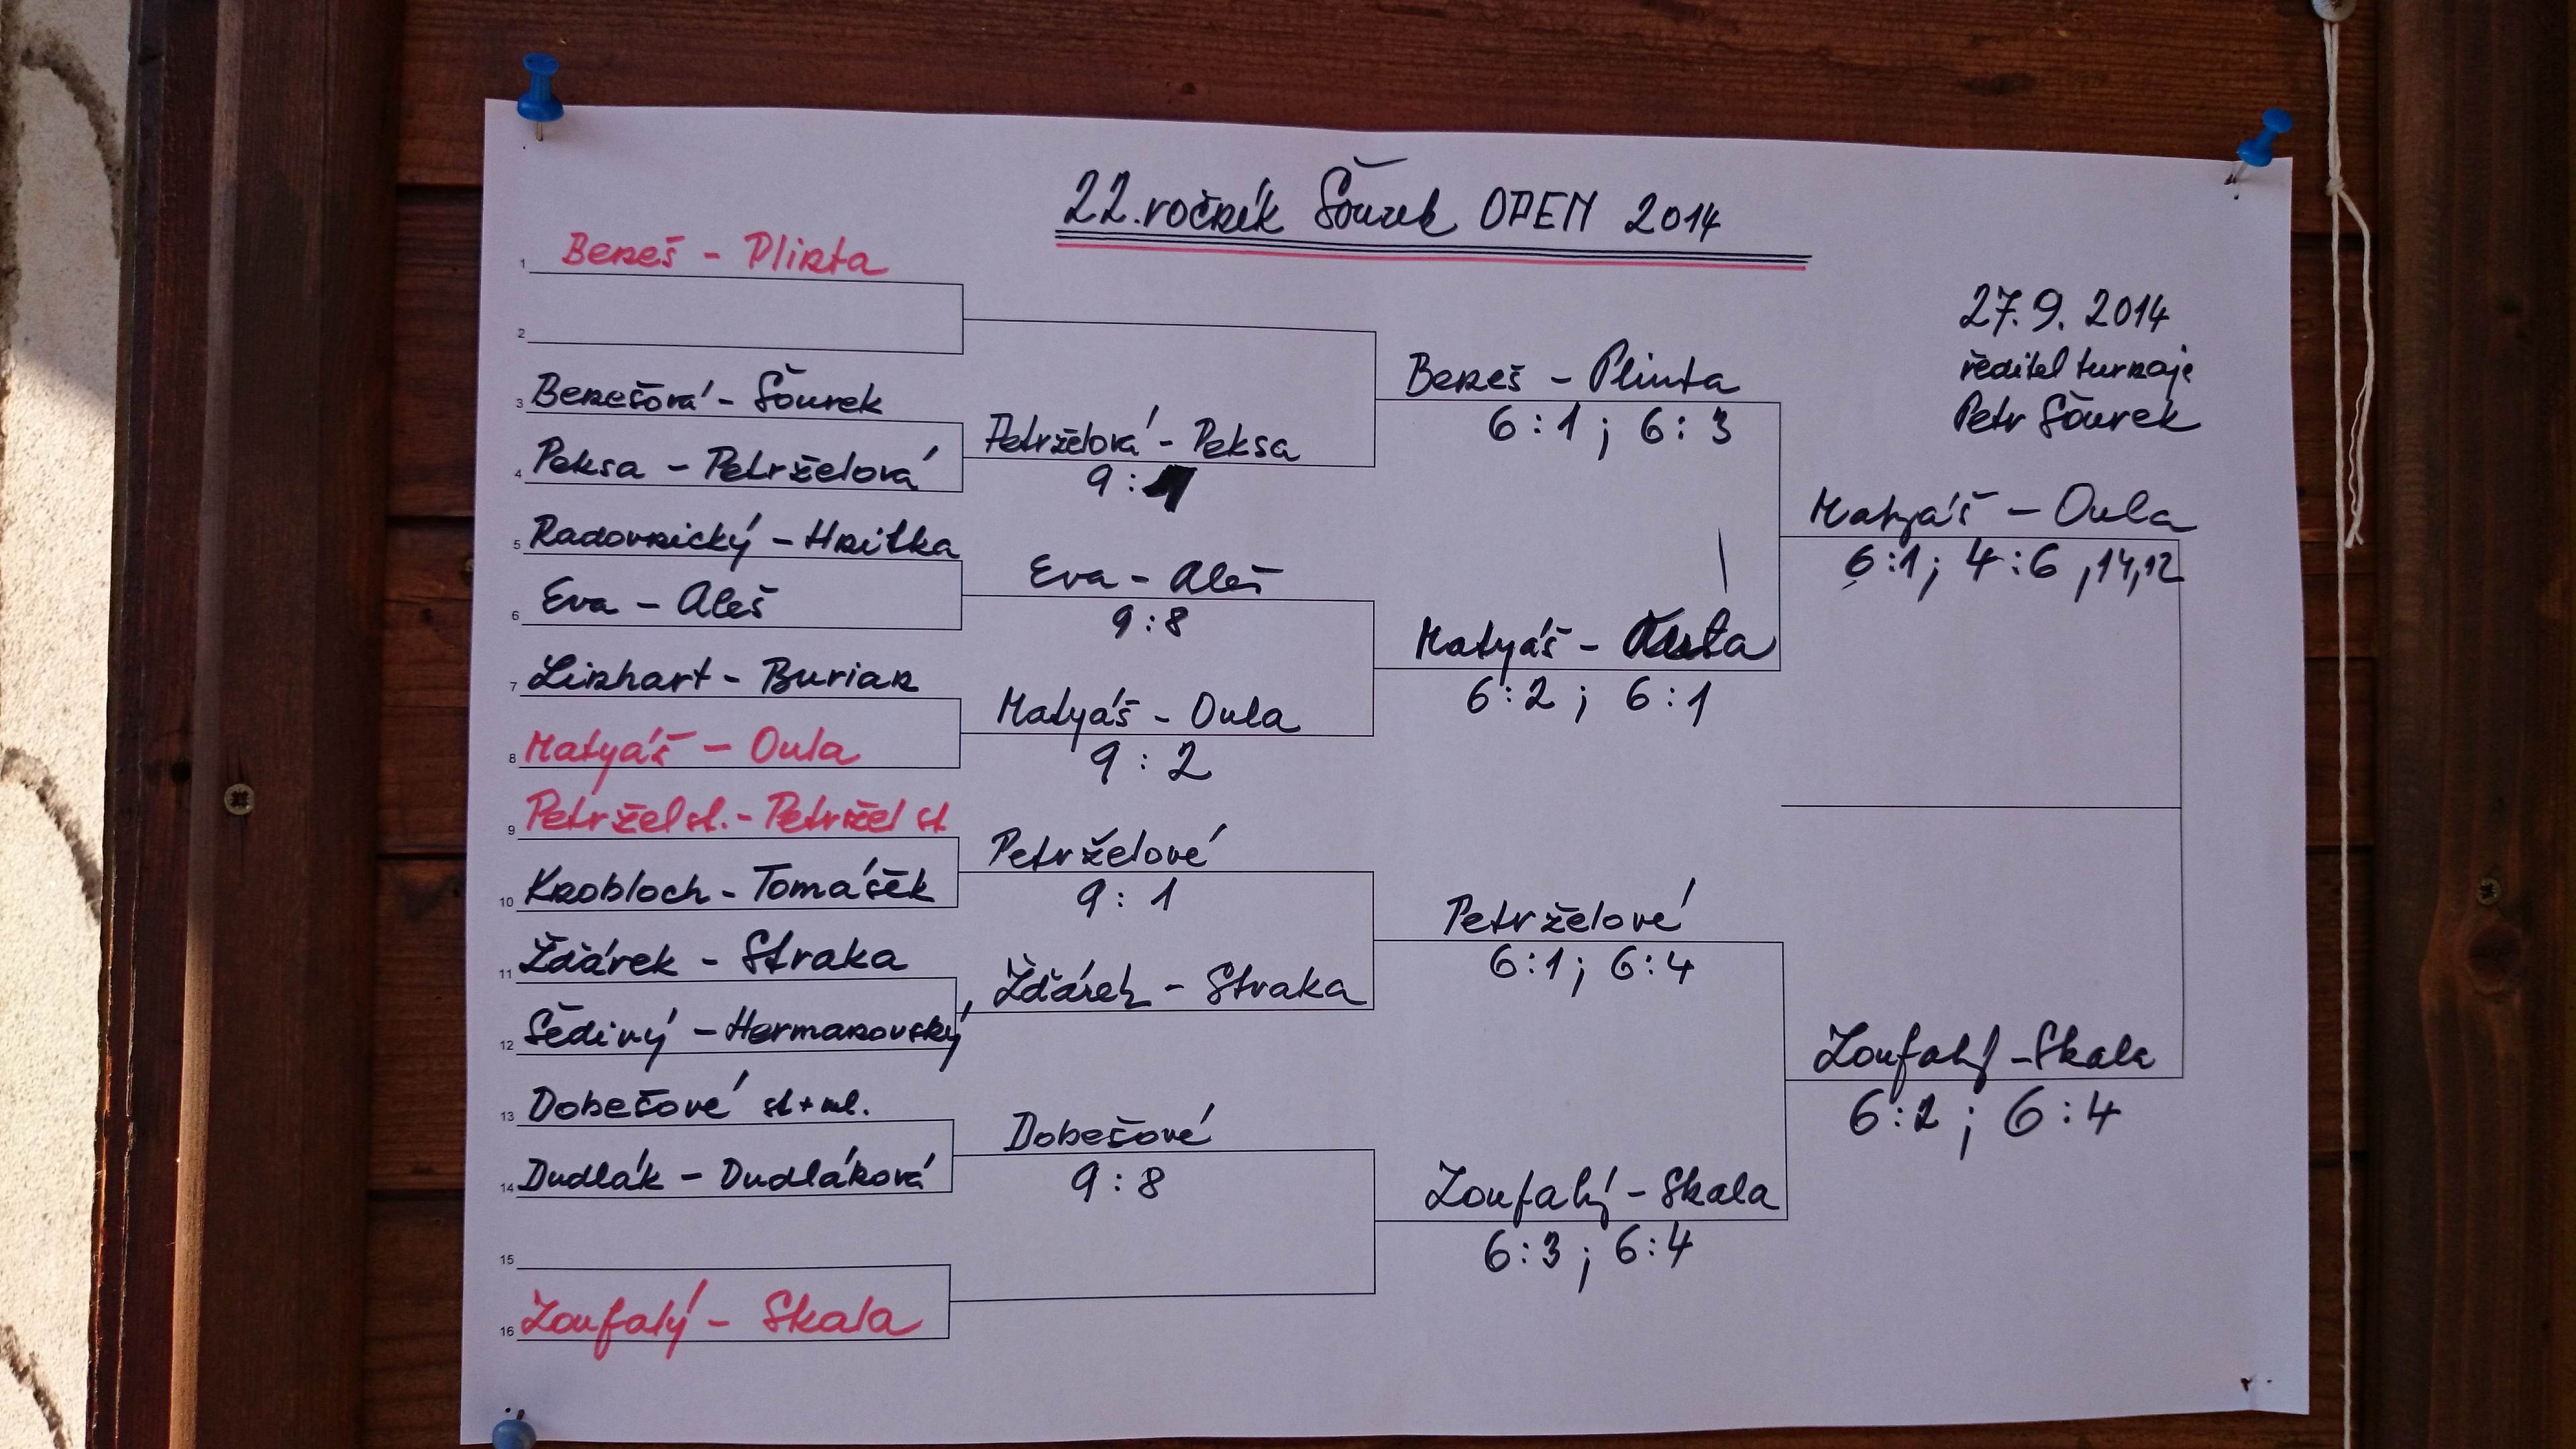 22. ročník Šourek OPEN 2014
27.9. 2014
ředitel turnaje
Petr Šourek
1 Beneš - Plinta
2
3 Benešová - Šourek
4 Peksa - Petrželová
5 Radovnický - Hnilka
6 Eva - Aleš
7 Linhart - Burian
8 Matyáš - Oula
9 Petržel st. - Petržel st
10 Knobloch - Tomášek
11 Žďárek - Straka
12 Šedivý - Hermanovský
13 Dobešové st + ml.
14 Dudlák - Dudláková
15
16 Zoufalý - Skala
Petrželová - Peksa
9 :
Eva - Aleš
9 : 8
Matyáš - Oula
9 : 2
Petrželové
9 : 1
Žďárek - Straka
Dobešové
9 : 8
Beneš - Plinta
6 : 1 ; 6 : 3
Matyáš -
6 : 2 ; 6 : 1
Petrželové
6:1; 6:4
Zoufalý - Skala
6:3 ; 6:4
Matyáš - Oula
6:1; 4:6 ,14,12
Zoufalý - Skala
6:2 ; 6:4